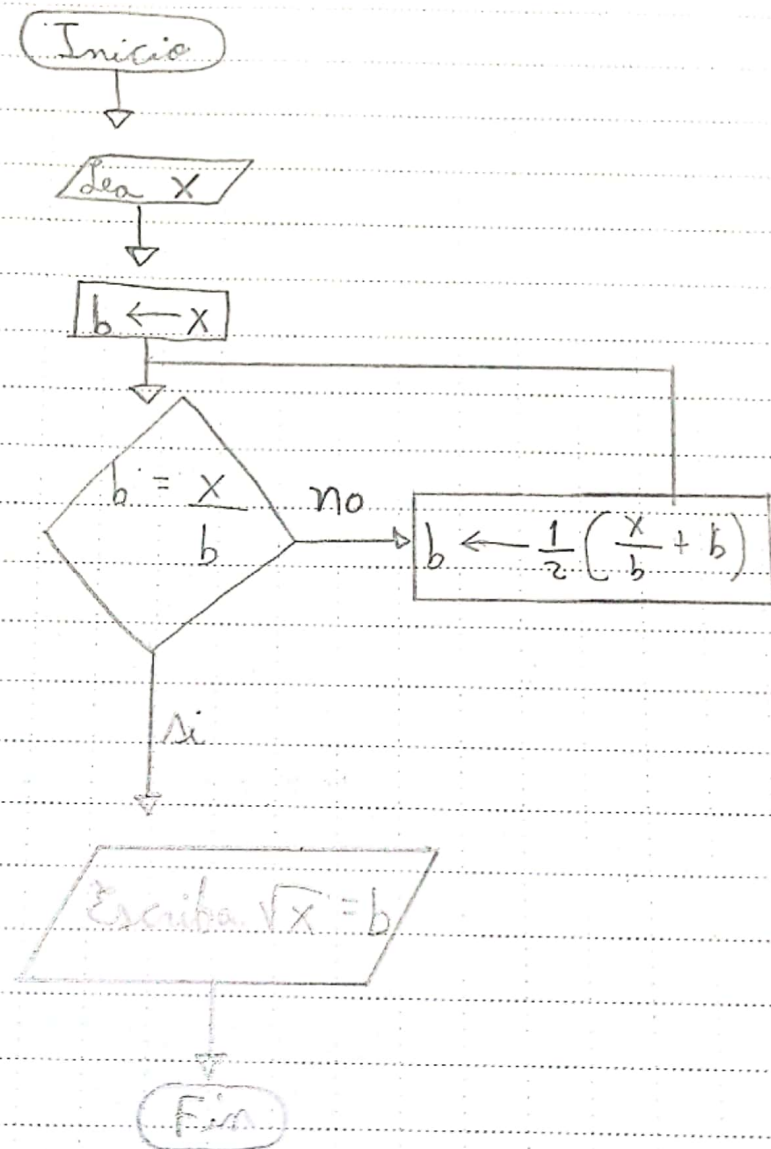 Inicio
Lea X
b ← X
b = X/b
no
b ← 1/2 (X/b + b)
si
Escriba √X = b
Fin